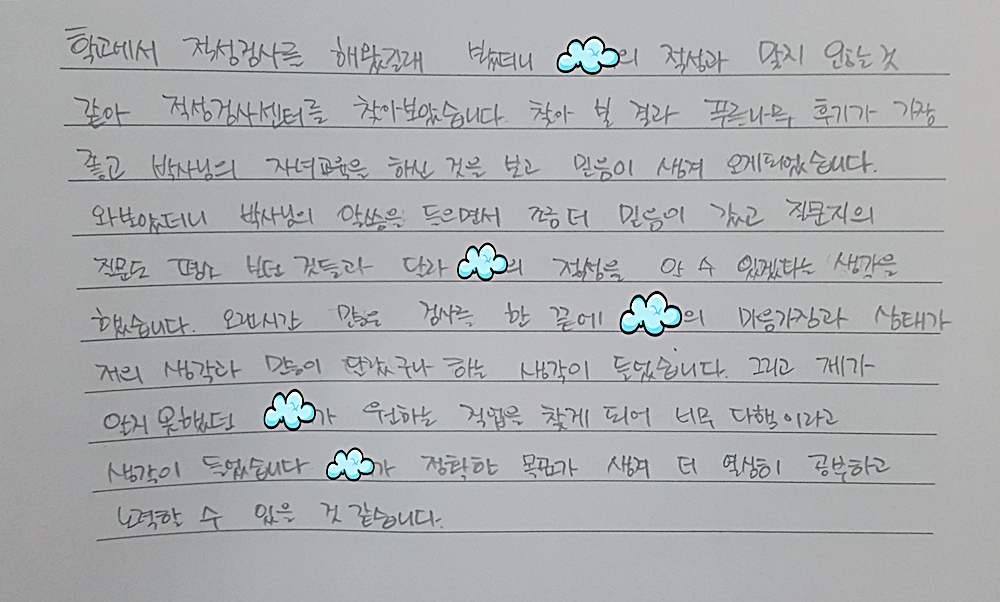 학교에서 적성검사를 해왔길래 봤더니 의 적성과 맞지 않는 것
같아 적성검사센터를 찾아보았습니다. 찾아 본 결과 푸른나무 후기가 가장
좋고 박사님의 자녀교육을 하신 것을 보고 믿음이 생겨 오게되었습니다.
와보았더니 박사님의 말씀을 들으면서 좀 더 믿음이 갔고 질문지의
질문도 평상 보던 것들과 달라 의 적성을 알 수 있겠다는 생각을
했습니다. 오랜시간 많은 검사를 한 끝에 의 마음가짐과 상태가
저의 생각과 많이 달랐구나 하는 생각이 들었습니다. 그리고 제가
알지 못했던 가 원하는 직업을 찾게 되어 너무 다행이라고
생각이 들었습니다 가 정확한 목표가 생겨 더 열심히 공부하고
노력할 수 있을 것 같습니다.